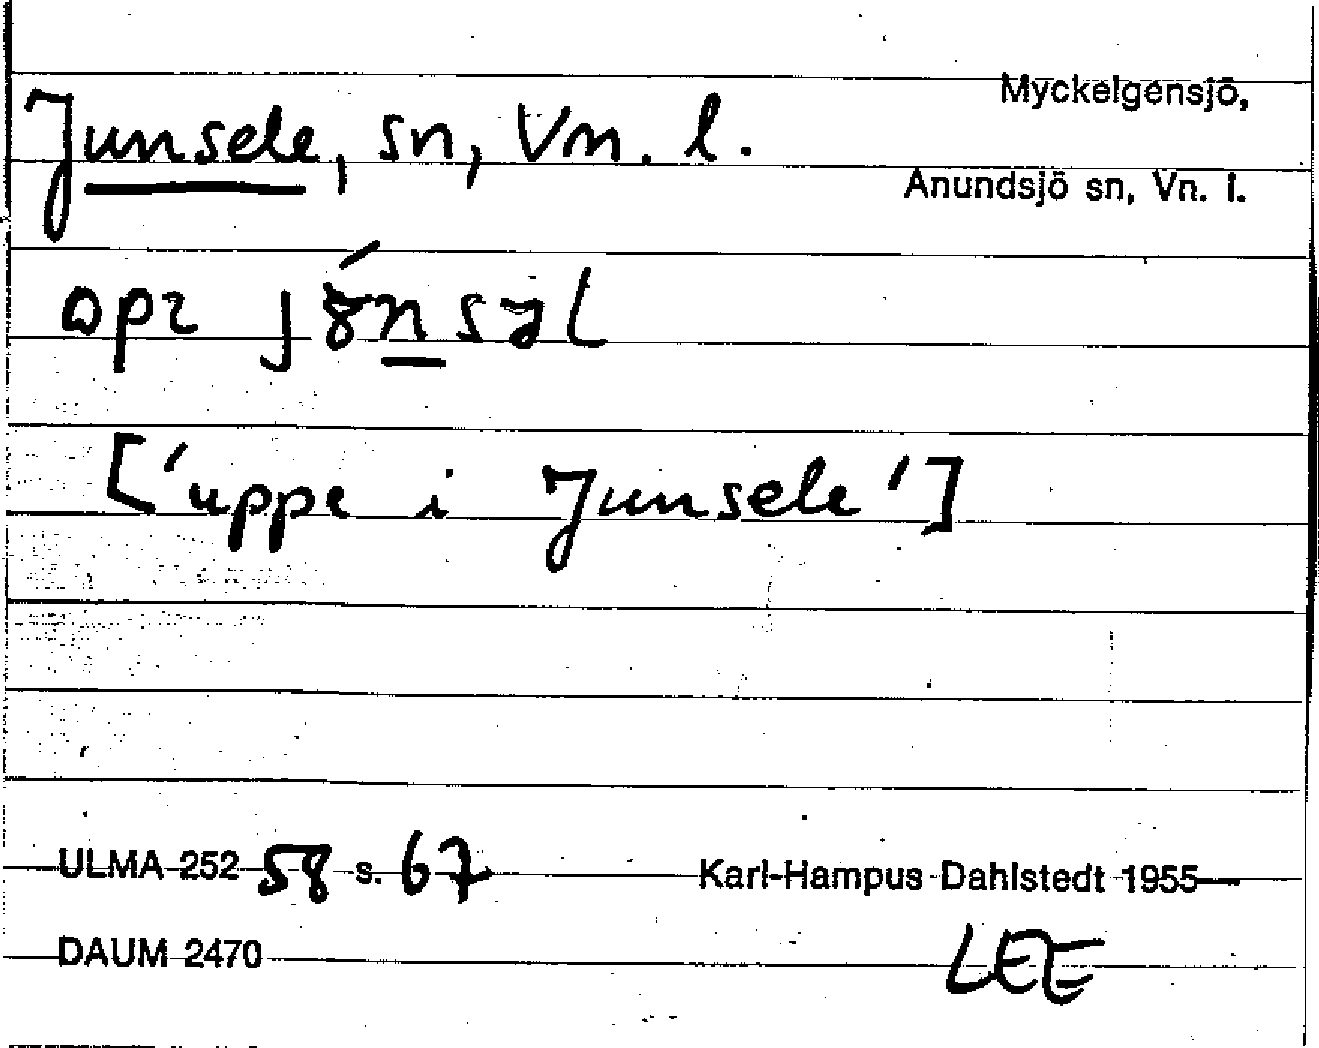 Myckelgensjö,
Junsele, sn, Vn. l.
Anundsjö sn, Vn. l.
['uppe i Junsele']
ULMA 252 58 s. 67 Karl-Hampus Dahlstedt 1955
DAUM 2470 LEE